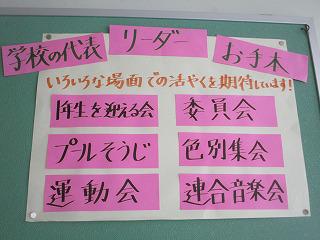 学校の代表
リーダー
お手本
いろいろな場面での活やくを期待しています!
1年生を迎える会
委員会
プールそうじ
色別集会
運動会
連合音楽会